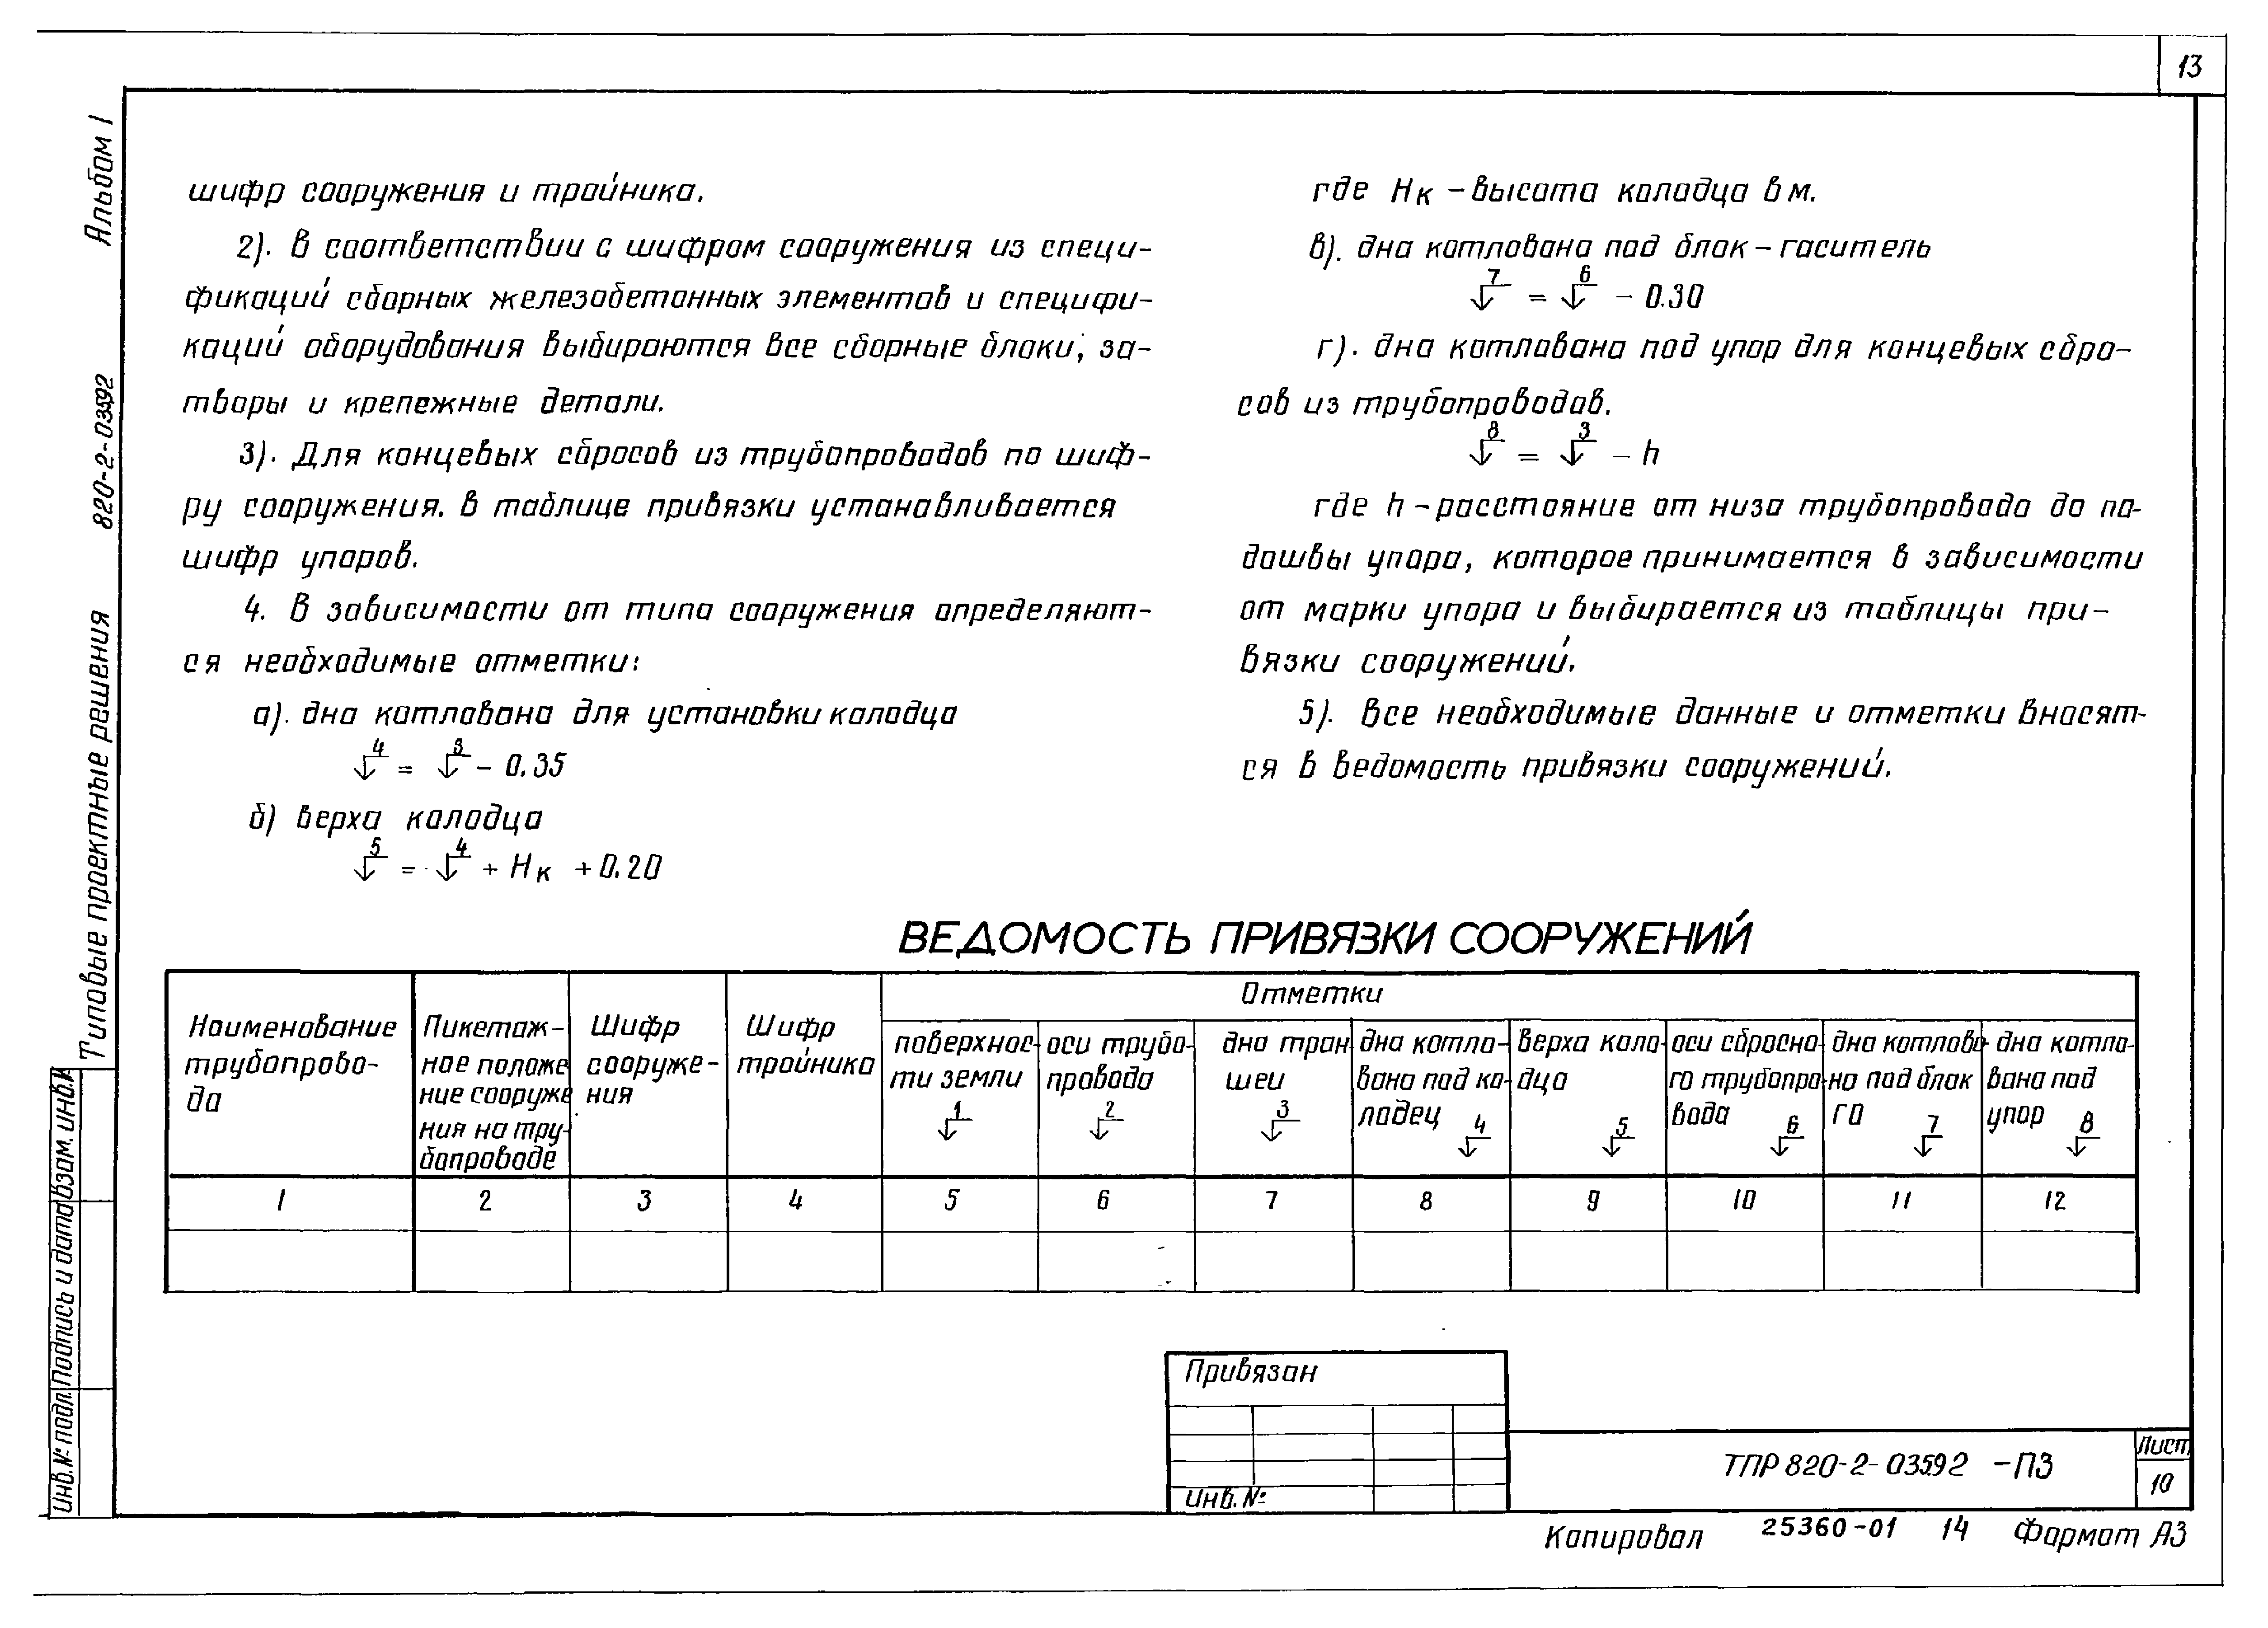 13
Альбом I
820-2-03592
Типовые проектные решения
шифр сооружения и тройника.
2). В соответствии с шифром сооружения из специ-
фикаций сборных железобетонных элементов и специфи-
каций оборудования выбираются все сборные блоки, за-
творы и крепежные детали.
3). Для концевых сбросов из трубопроводов по шиф-
ру сооружения. в таблице привязки устанавливается
шифр упоров.
4. В зависимости от типа сооружения определяют-
ся необходимые отметки:
а). дна котлована для установки колодца
4 = 3 - 0.35
б) верха колодца
5 = 4 + Нк + 0.20
где Нк - высота колодца в м.
в). дна котлована под блок - гаситель
7 = 6 - 0.30
г). дна котлована под упор для концевых сбро-
сов из трубопроводов.
8 = 3 - h
где h - расстояние от низа трубопровода до по-
дошвы упора, которое принимается в зависимости
от марки упора и выбирается из таблицы при-
вязки сооружений.
5). Все необходимые данные и отметки вносят-
ся в ведомость привязки сооружений.
ВЕДОМОСТЬ ПРИВЯЗКИ СООРУЖЕНИЙ
Наименование
трубопрово-
да
Пикетаж-
ное положе
ние сооруже
ния на тру-
бопроводе
Шифр
сооруже-
ния
Шифр
тройника
Отметки
поверхнос-
ти земли
1
оси трубо-
провода
2
дна тран
шеи
3
дна котло-
вана под ко-
лодец
4
верха коло-
дца
5
оси сбросно-
го трубопро-
вода
6
дна котлова-
на под блок
ГА
7
дна котло-
вана под
упор
8
1 2 3 4 5 6 7 8 9 10 11 12
Привязан
Инв. №
ТПР 820-2-03592 -ПЗ
Лист
10
Взам. инв. №
Подпись и дата
Инв. № подл.
Копировал
25360-01
14
Формат А3